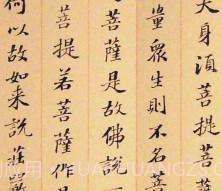 夫身須菩提菩
量眾生則不名菩
菩薩是故佛說
菩提若菩薩作是
何以故如来說莊嚴